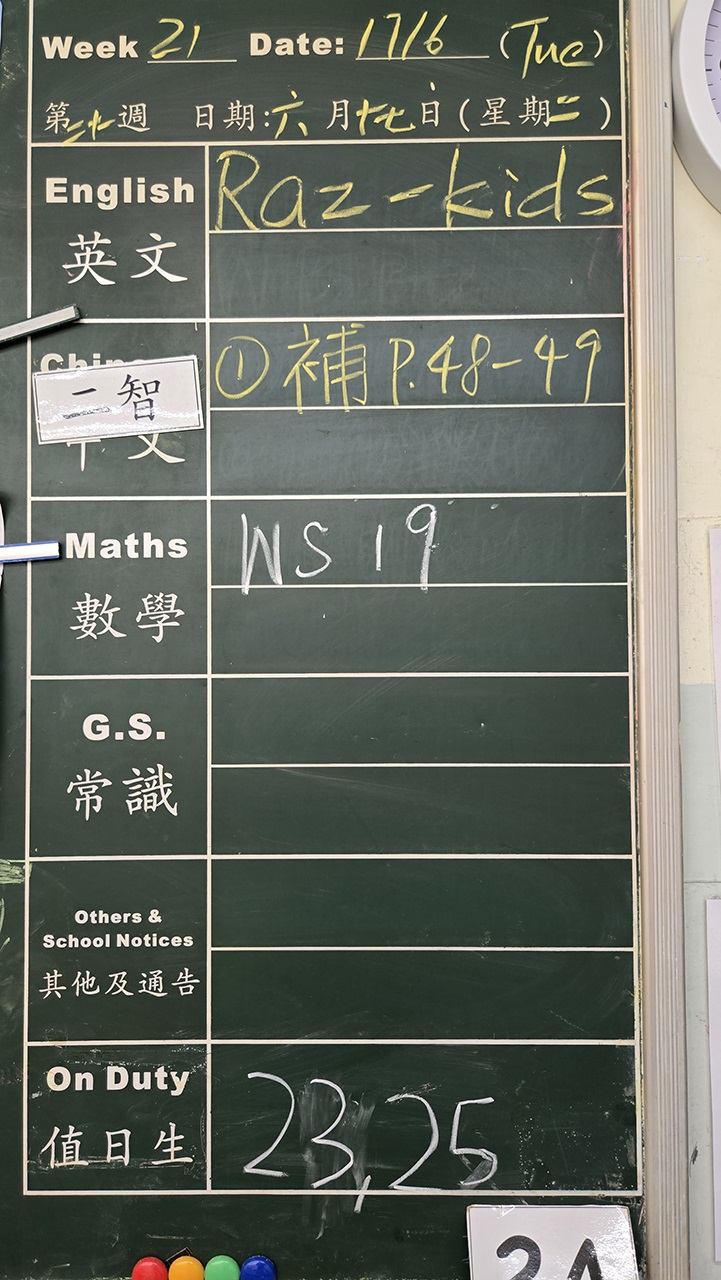 Week 21 Date: 17/6 (Tue)
第二十週 日期:六月十七日(星期二)
English Raz-kids
英文
① 補 P.48-49
二智
中文
Maths WS 19
數學
G.S.
常識
Others &
School Notices
其他及通告
On Duty
值日生 23,25